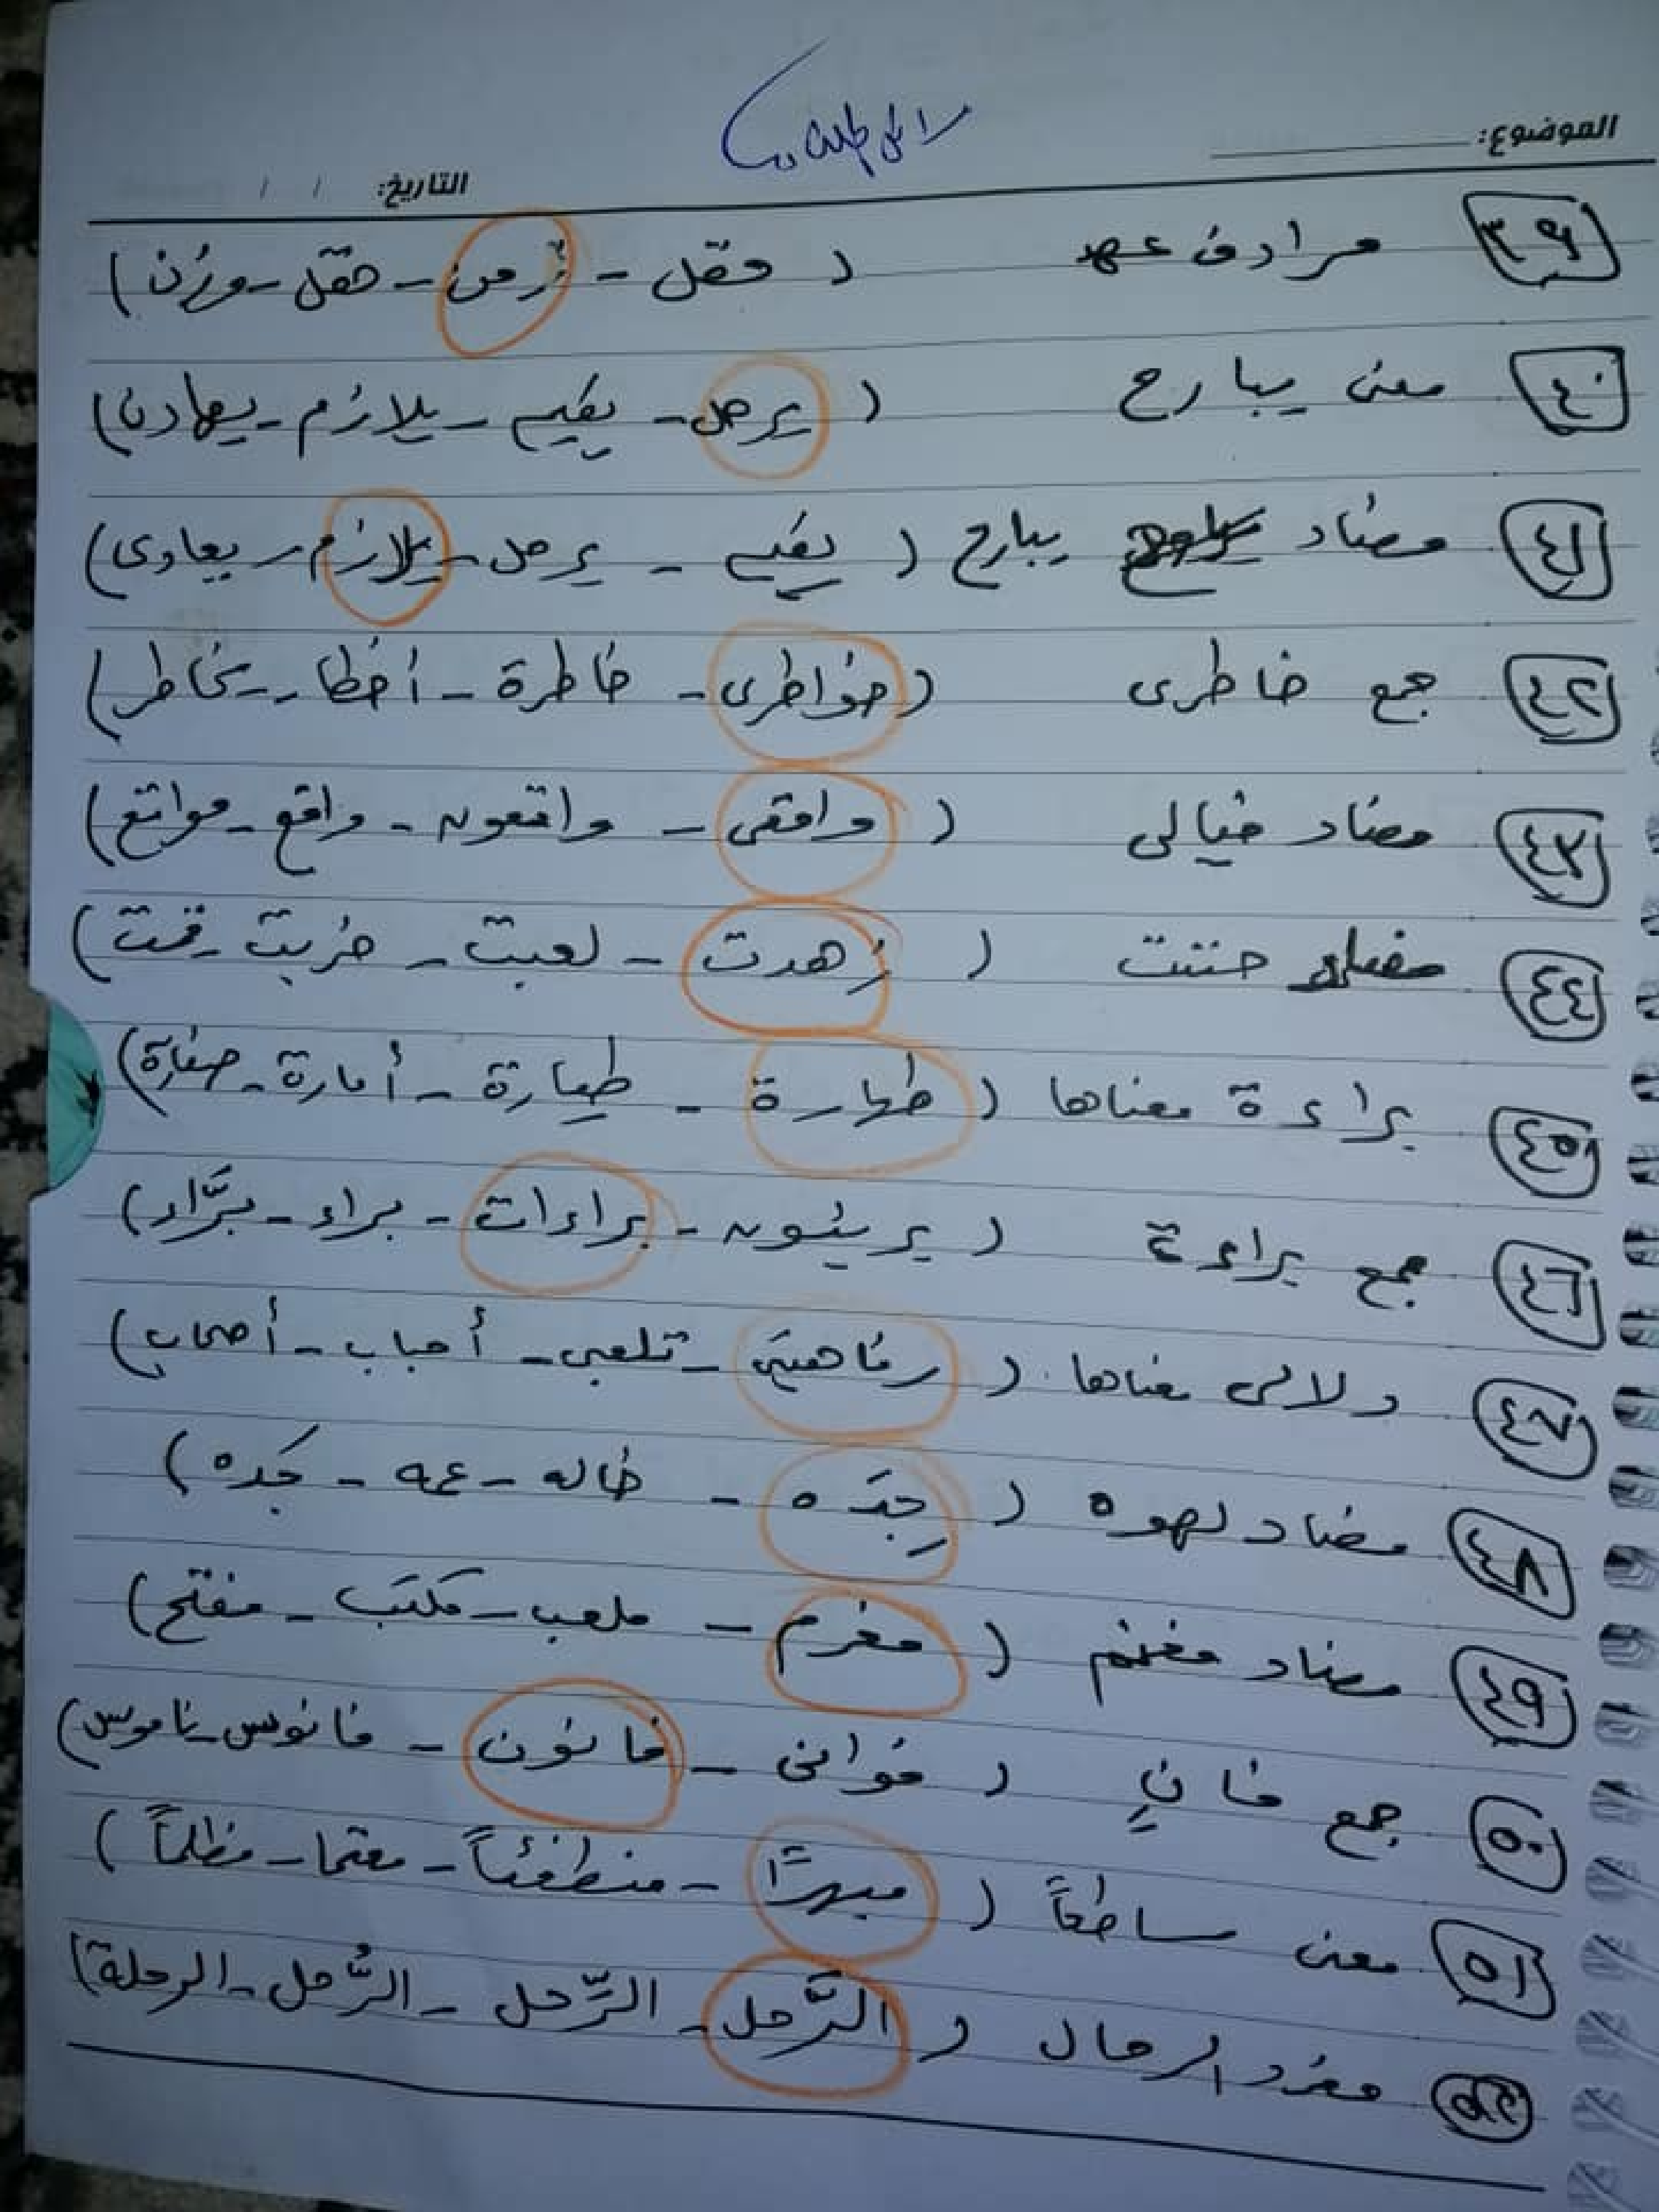 الموضوع:
التاريخ: / /
٣٩ مرادف عهد ( حقل - زمن - هقل - وزن )
٤٠ معنى يبارح ( يرحل - يقيم - يلازم - يهادن )
٤١ مضاد يبارح ( يقيم - يرحل - يلازم - يعادى )
٤٢ جمع خاطرى ( خواطرى - خاطرة - أخطار - يخاطر )
٤٣ مضاد خيالى ( واقعى - واقعون - واقع - مواقع )
٤٤ حننت ( زهدت - لعبت - ضربت - قمت )
٤٥ براءة معناها ( طهارة - طيارة - أمارة - صفارة )
٤٦ جمع براءة ( بريئون - براءات - براء - برَّاد )
٤٧ دلالى معناها ( رفاهيتى - تلعبى - أحباب - أصحاب )
٤٨ مضاد لهوه ( جِدَّه - خاله - عمه - جَده )
٤٩ مضاد مغنم ( مغرم - ملعب - مكتب - مفتح )
٥٠ جمع فانٍ ( فوانى - فانون - فانوس - ناموس )
٥١ معنى ساطعاً ( مبهرًا - منطفئاً - معتما - مظلماً )
٥٢ مفرد الرحال ( الرَّحل - الرِّحل - الرُّحل - الرحلة )